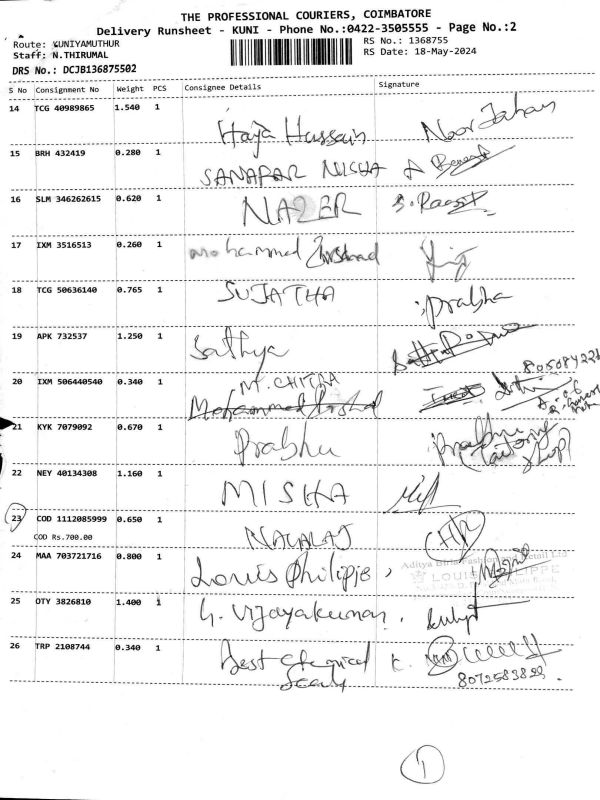 THE PROFESSIONAL COURIERS, COIMBATORE
Delivery Runsheet - KUNI - Phone No.:0422-3505555 - Page No.:2
Route: KUNIYAMUTHUR RS No.: 1368755
Staff: N.THIRUMAL RS Date: 18-May-2024
DRS No.: DCJB136875502
S No Consignment No Weight PCS Consignee Details Signature
14 TCG 40989865 1.540 1 Haja Hussain Noor Jahan
15 BRH 432419 0.280 1 SANAPAR NISHA
16 SLM 346262615 0.620 1 NAZER
17 IXM 3516513 0.260 1 Mohammed Irshad
18 TCG 50636140 0.765 1 SUJATHA Prabha
19 APK 732537 1.250 1 Sathya
20 IXM 506440540 0.340 1 M. CHITRA
Mohammed Irshad
21 KYK 7079092 0.670 1 Prabhu Prabhu
(Tailoring
shop)
22 NEY 40134308 1.160 1 MISHA
23 COD 1112085999 0.650 1
COD Rs.700.00
24 MAA 703721716 0.800 1 Louis Philippe,
Aditya Birla Fashion and Retail Ltd
LOUIS PHILIPPE
25 OTY 3826810 1.400 1 G. Vijayakumar.
26 TRP 2108744 0.340 1 Best Chemical
8072583823.
1